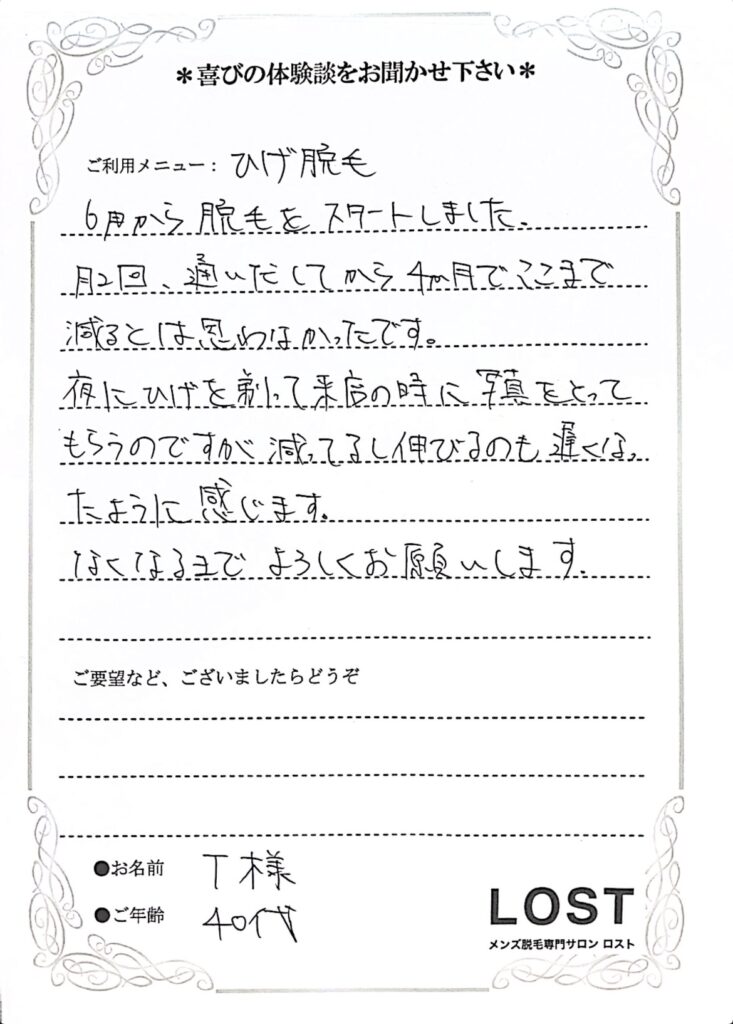 ＊喜びの体験談をお聞かせ下さい＊
ご利用メニュー： ひげ脱毛
6月から脱毛をスタートしました.
月2回、通いだしてから4か月でここまで
減るとは思わなかったです。
夜にひげを剃って来店の時に写真をとって
もらうのですが減ってるし伸びるのも遅くなっ
たように感じます.
なくなるまでよろしくお願いします.
ご要望など、ございましたらどうぞ
●お名前 T様
●ご年齢 40代
LOST
メンズ脱毛専門サロン ロスト